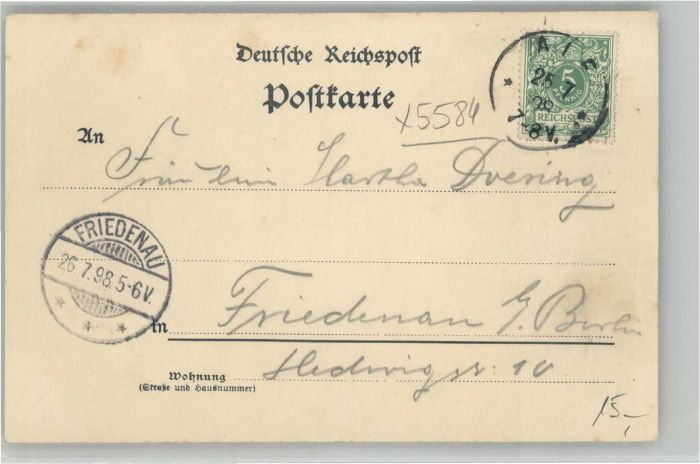 Deutsche Reichspost
Postkarte
x5584
5
REICHSPOST
25 7
98
7-8V.
An
Fräulein Martha Doering
FRIEDENAU
26.7.98.5-6V.
in Friedenau b/ Berlin
Wohnung Hedwigstr. 10
(Straße und Hausnummer)
15,-